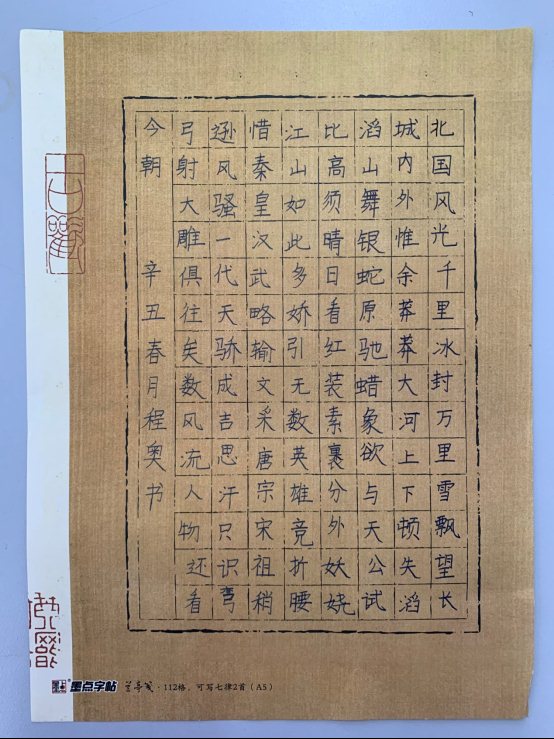 北国风光千里冰封万里雪飘望长
城内外惟余莽莽大河上下顿失滔
滔山舞银蛇原驰蜡象欲与天公试
比高须晴日看红装素裹分外妖娆
江山如此多娇引无数英雄竞折腰
惜秦皇汉武略输文采唐宗宋祖稍
逊风骚一代天骄成吉思汗只识弯
弓射大雕俱往矣数风流人物还看
今朝 辛丑春月程奥书
墨点字帖 兰亭笺·112格，可写七律2首（A5）